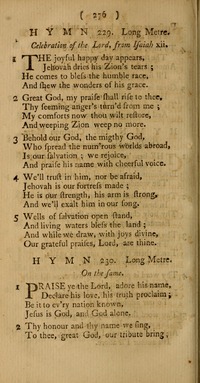 ( 236 )
HYMN 229. Long Metre.
Celebration of the Lord, from Isaiah xii.
1 THE joyful happy day appears,
Jehovah dries his Zion's tears;
He comes to bleſs the humble race,
And ſhew the wonders of his grace.
2 Great God, my praiſe ſhall riſe to thee,
Thy ſeeming anger's turn'd from me;
My comforts now thou walt reſtore,
And weeping Zion weep no more.
3 Behold our God, the migthy God,
Who ſpread the num'rous worlds abroad,
Is our ſalvation; we rejoice,
And praiſe his name with cheerful voice.
4 We'll truſt in him, nor be afraid,
Jehovah is our fortreſs made;
He is our ſtrength, his arm is ſtrong,
And we'll exalt him in our ſong.
5 Wells of ſalvation open ſtand,
And living waters bleſs the land;
And while we draw, with joys divine,
Our grateful praiſes, Lord, are thine.
HYMN 230. Long Metre.
On the ſame.
1 PRAISE ye the Lord, adore his name,
Declare his love, his truth proclaim;
Be it to ev'ry nation known,
Jeſus is God, and God alone.
2 Thy honour and thy name we ſing,
To thee, great God, our tribute bring;